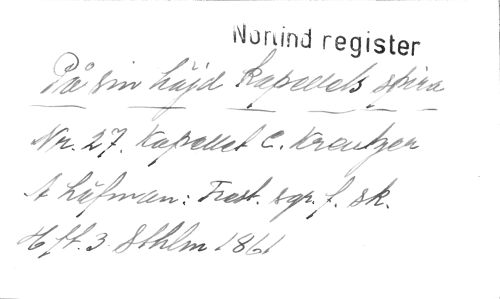 Norlind register
På sin höjd kapellets spira
Nr. 27. Kapellet C. Kreutzer
A Häfman: Trest. sgr. f. sk.
Hft. 3. Sthlm 1861